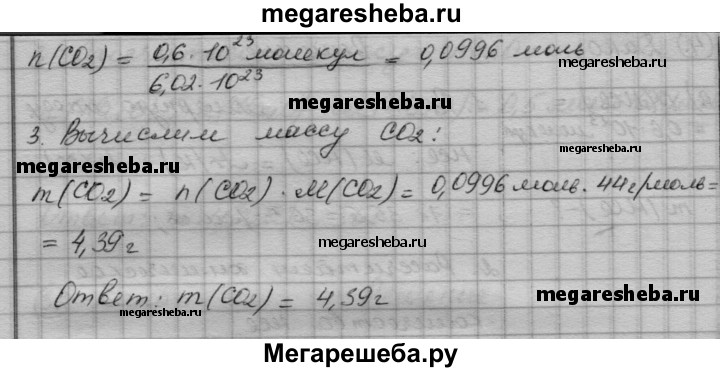 megaresheba.ru
n(CO₂) = 0,6 · 10²³ молекул / 6,02 · 10²³ = 0,0996 моль
megaresheba.ru
megaresheba.ru
3. Вычислим массу CO₂:
megaresheba.ru
megaresheba.ru
m(CO₂) = n(CO₂) · M(CO₂) = 0,0996 моль · 44 г/моль =
= 4,39 г
megaresheba.ru
megaresheba.ru
Ответ: m(CO₂) = 4,39 г
megaresheba.ru
megaresheba.ru
Мегарешеба.ру